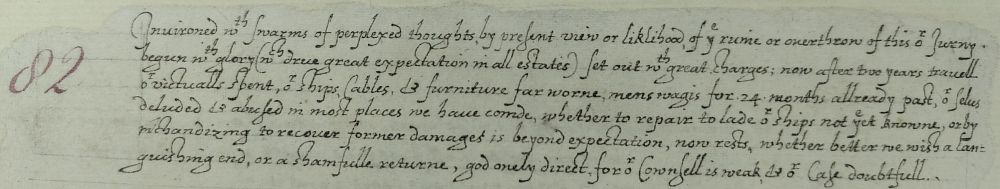 Invironed wth swarms of perplexed thoughts, by present view or liklihood, of ye ruine or overthrow of this or Jurny.
82
begun wth glory (wch drew great expectation in all estates) set out wth great charges; now after two years travell
or victualls spent, or ships, Cables, & furniture far worne, mens wagis for 24 months allready past, or selves
deluded & abused in most places we have comde, whether to repair to lade or ships not yet knowne, or by
mchandizing to recover former damages is beyond expectation, now rests, whether better we wish a lan=
guishing end, or a shamfulle returne, god onely direct, for or Cownsell is weak, & or Case doubtfull..